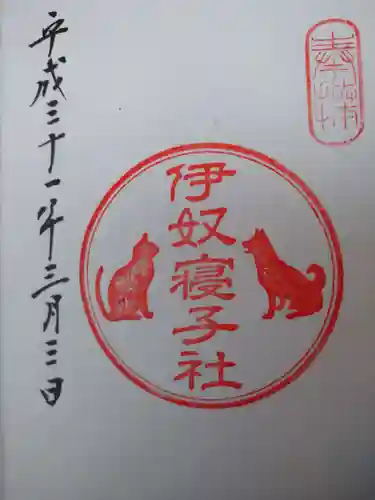 奉拝
伊奴寝子社
平成三十一年三月三日